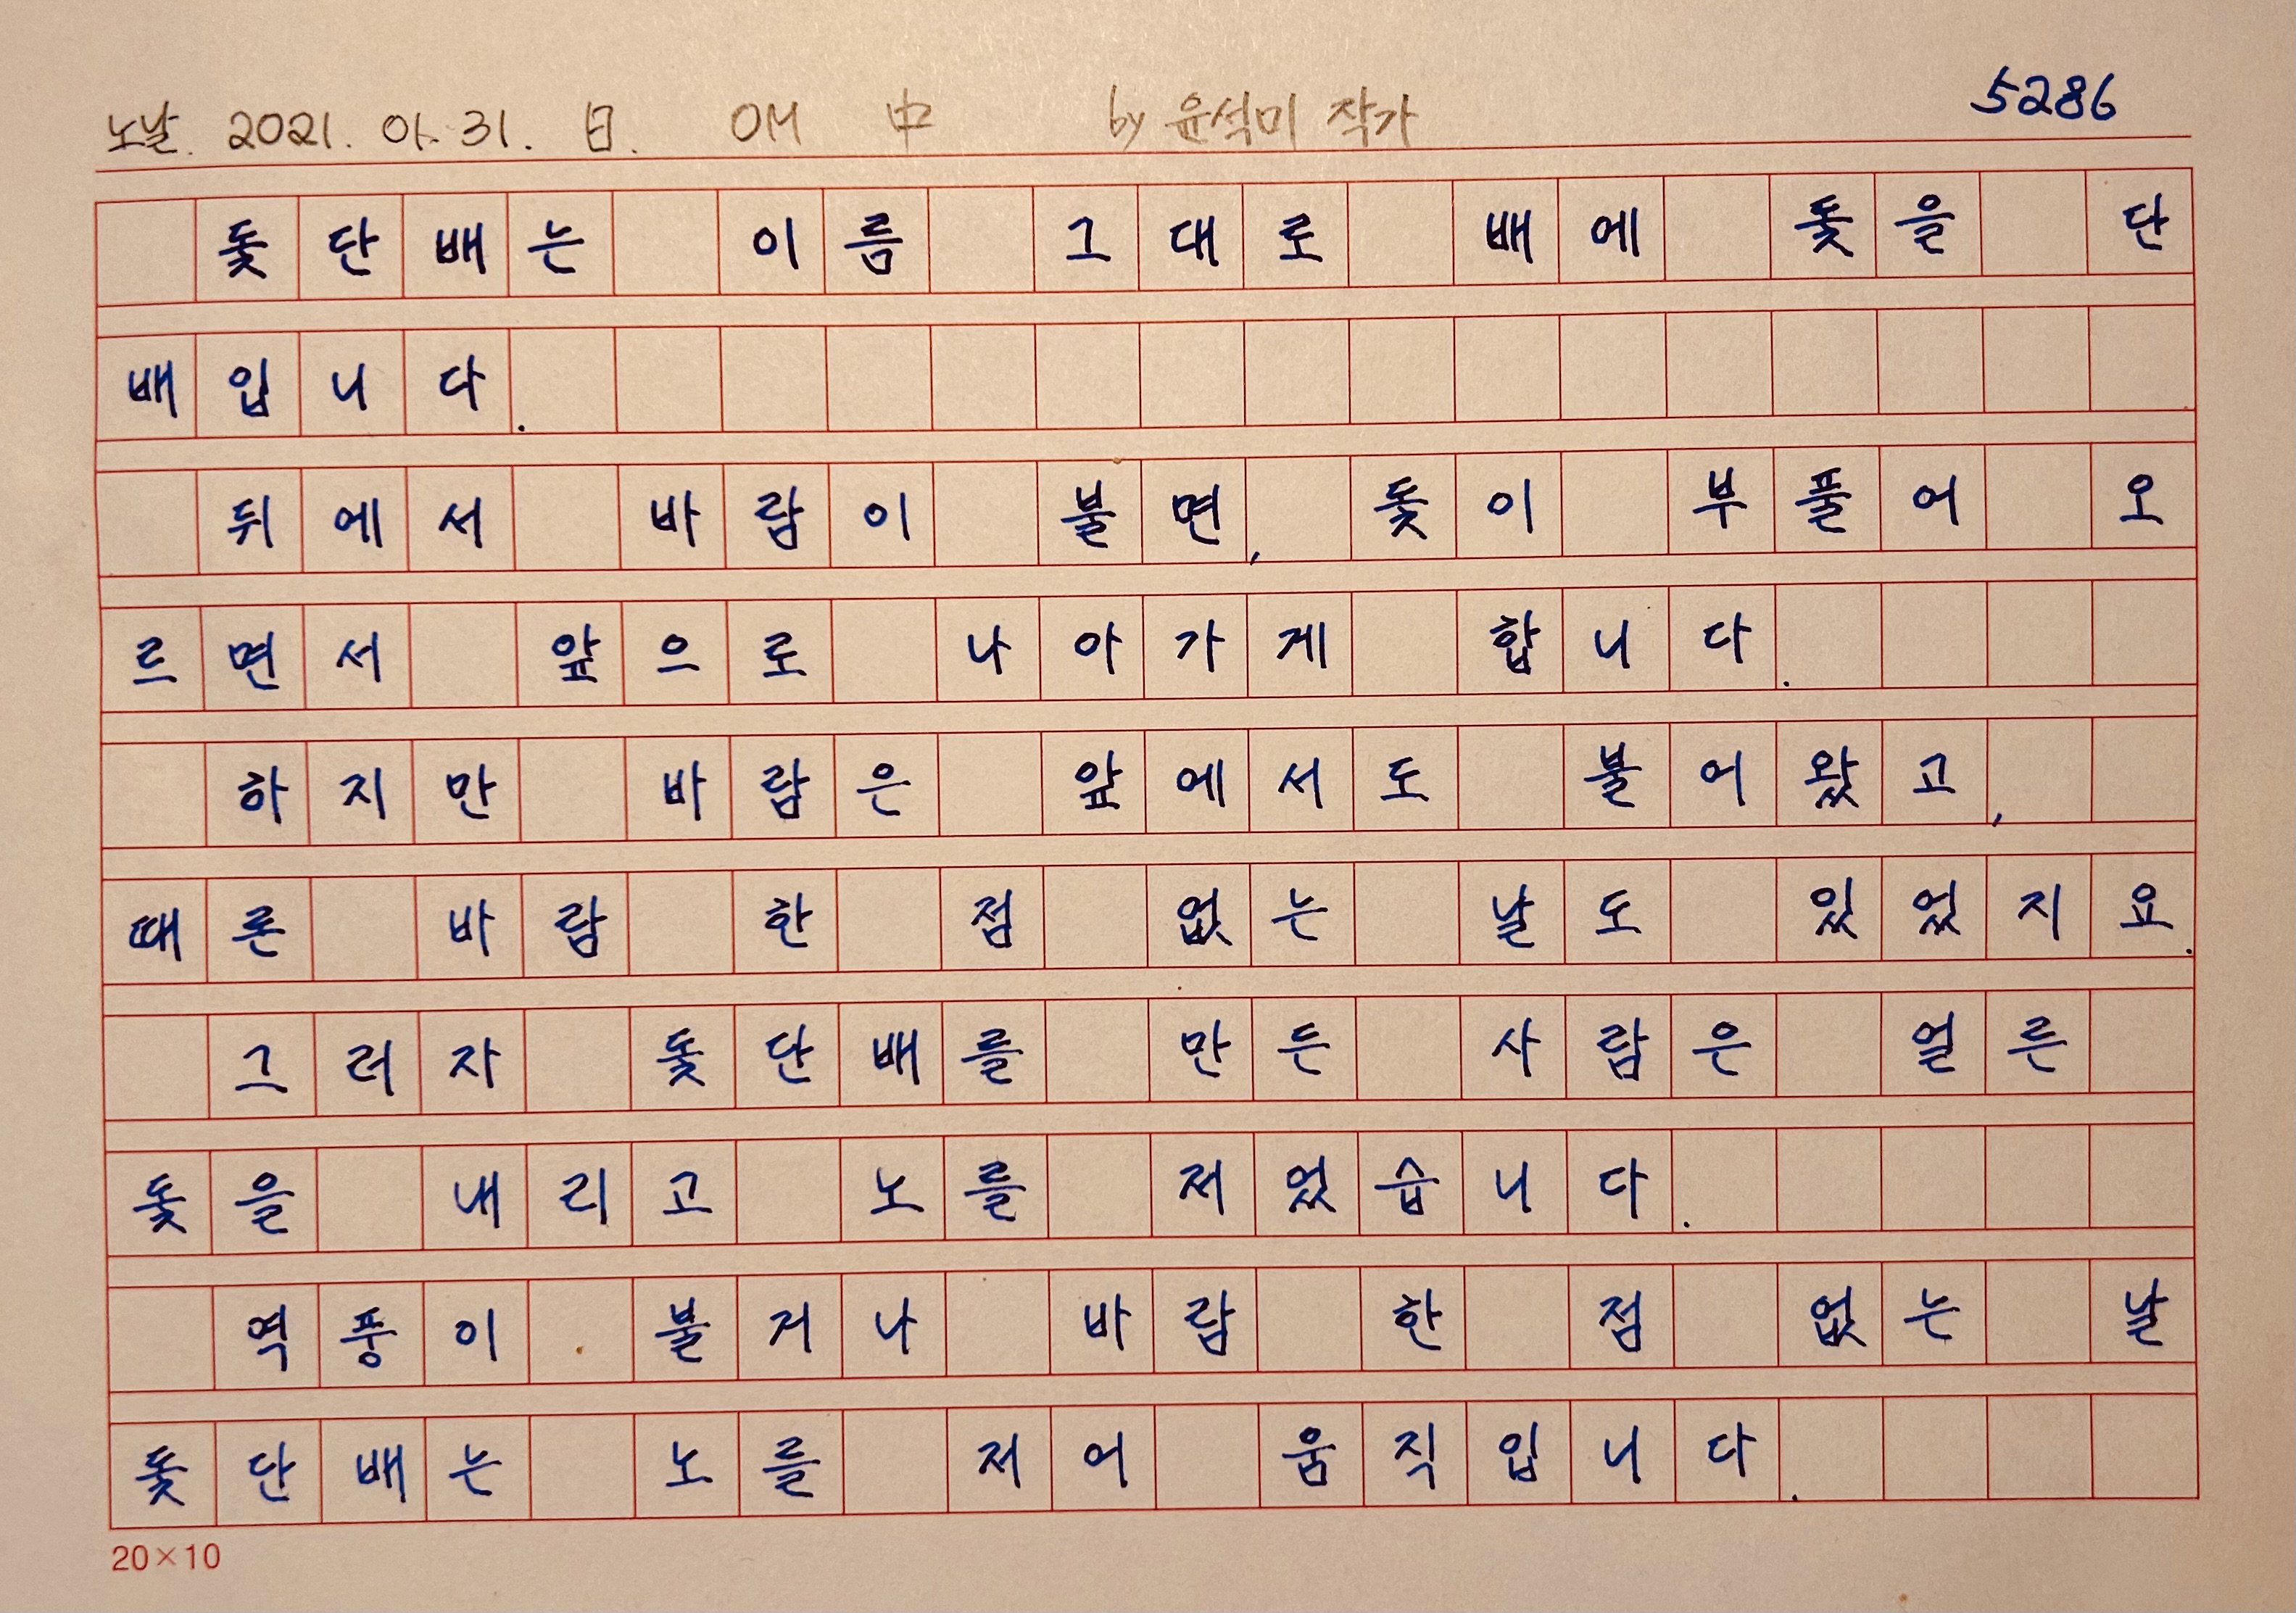 노날. 2021. 01. 31. 日. OM 中 by 윤석미 작가 5286
돛단배는 이름 그대로 배에 돛을 단
배입니다.
뒤에서 바람이 불면, 돛이 부풀어 오
르면서 앞으로 나아가게 합니다.
하지만 바람은 앞에서도 불어왔고,
때론 바람 한 점 없는 날도 있었지요.
그러자 돛단배를 만든 사람은 얼른
돛을 내리고 노를 저었습니다.
역풍이 불거나 바람 한 점 없는 날
돛단배는 노를 저어 움직입니다.
20×10